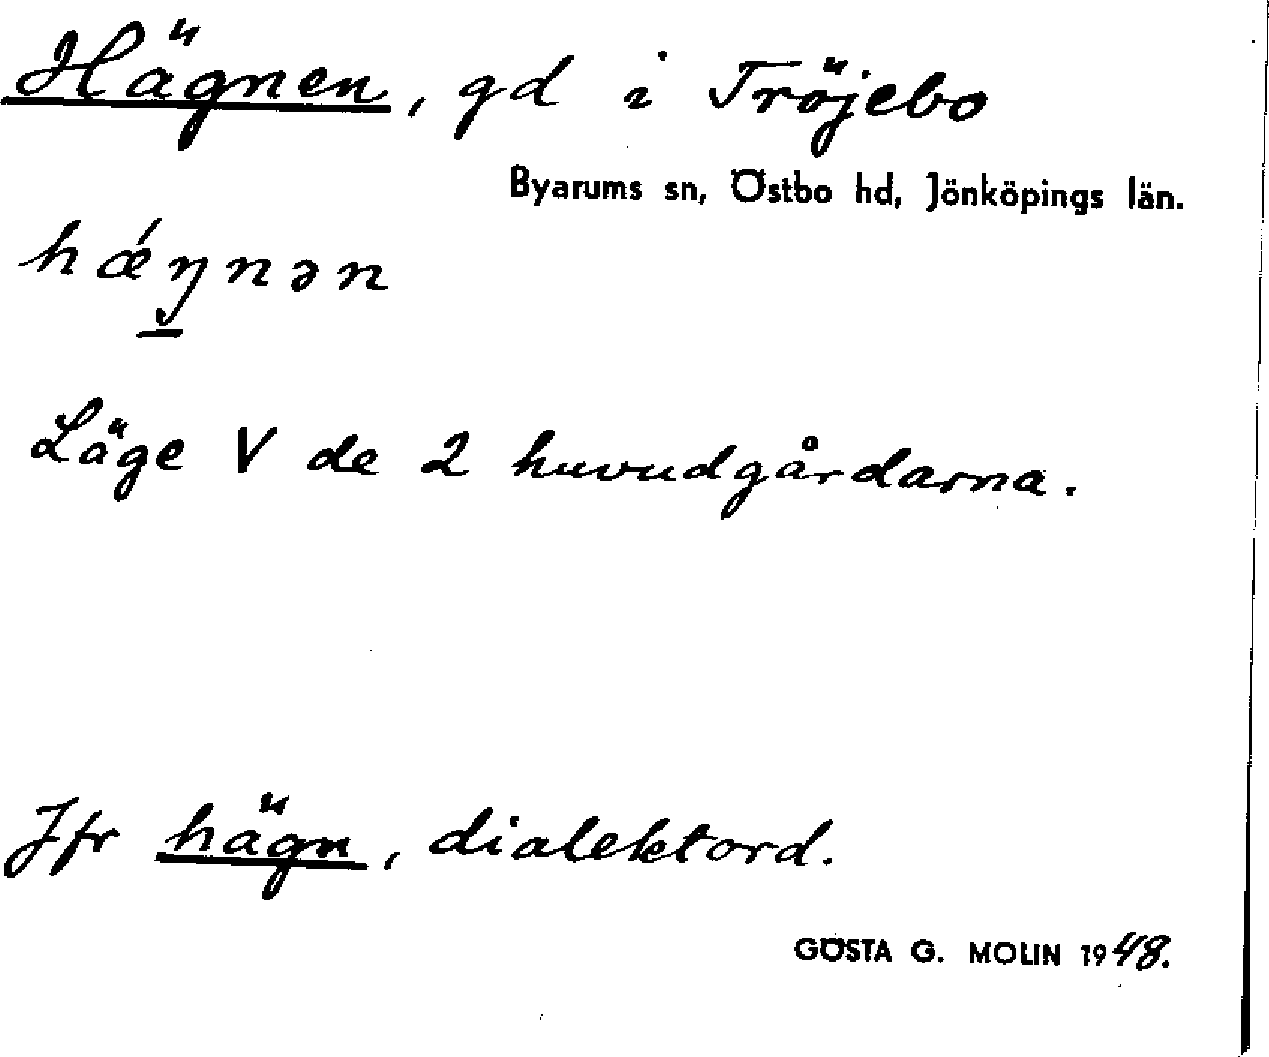 Hägnen, gd i Tröjebo
Byarums sn, Östbo hd, Jönköpings län.
hǽŋnən
Läge V de 2 huvudgårdarna.
Jfr hägn, dialektord.
GÖSTA G. MOLIN 1948.